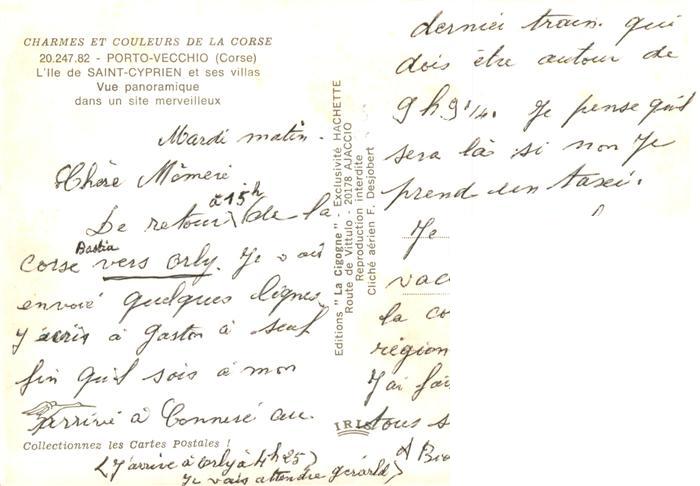 CHARMES ET COULEURS DE LA CORSE
20.247.82 - PORTO-VECCHIO (Corse)
L'Ile de SAINT-CYPRIEN et ses villas
Vue panoramique
dans un site merveilleux
Mardi matin.
Chère Mémère
à 15h
De retour de la
Bastia
corse vers orly. Je vais
envoié quelques lignes
J'écris à gaston à seul
fin qu'il sois à mon
arrivé à Conneré au
Collectionnez les Cartes Postales !
(J'arrive à orly à 4h25)
Je vais attendre gérarld)
Editions "La Cigogne" - Exclusivité HACHETTE
Route de Vittulo - 20178 AJACCIO
Reproduction interdite
Cliché aérien F. Desjobert
IRIS
dernier train. qui
dois être autour de
9h 9 1/4. Je pense qu'il
sera là si non Je
prend un taxi.
Je
vac
la co
région
J'ai fai
tous s
A Bie